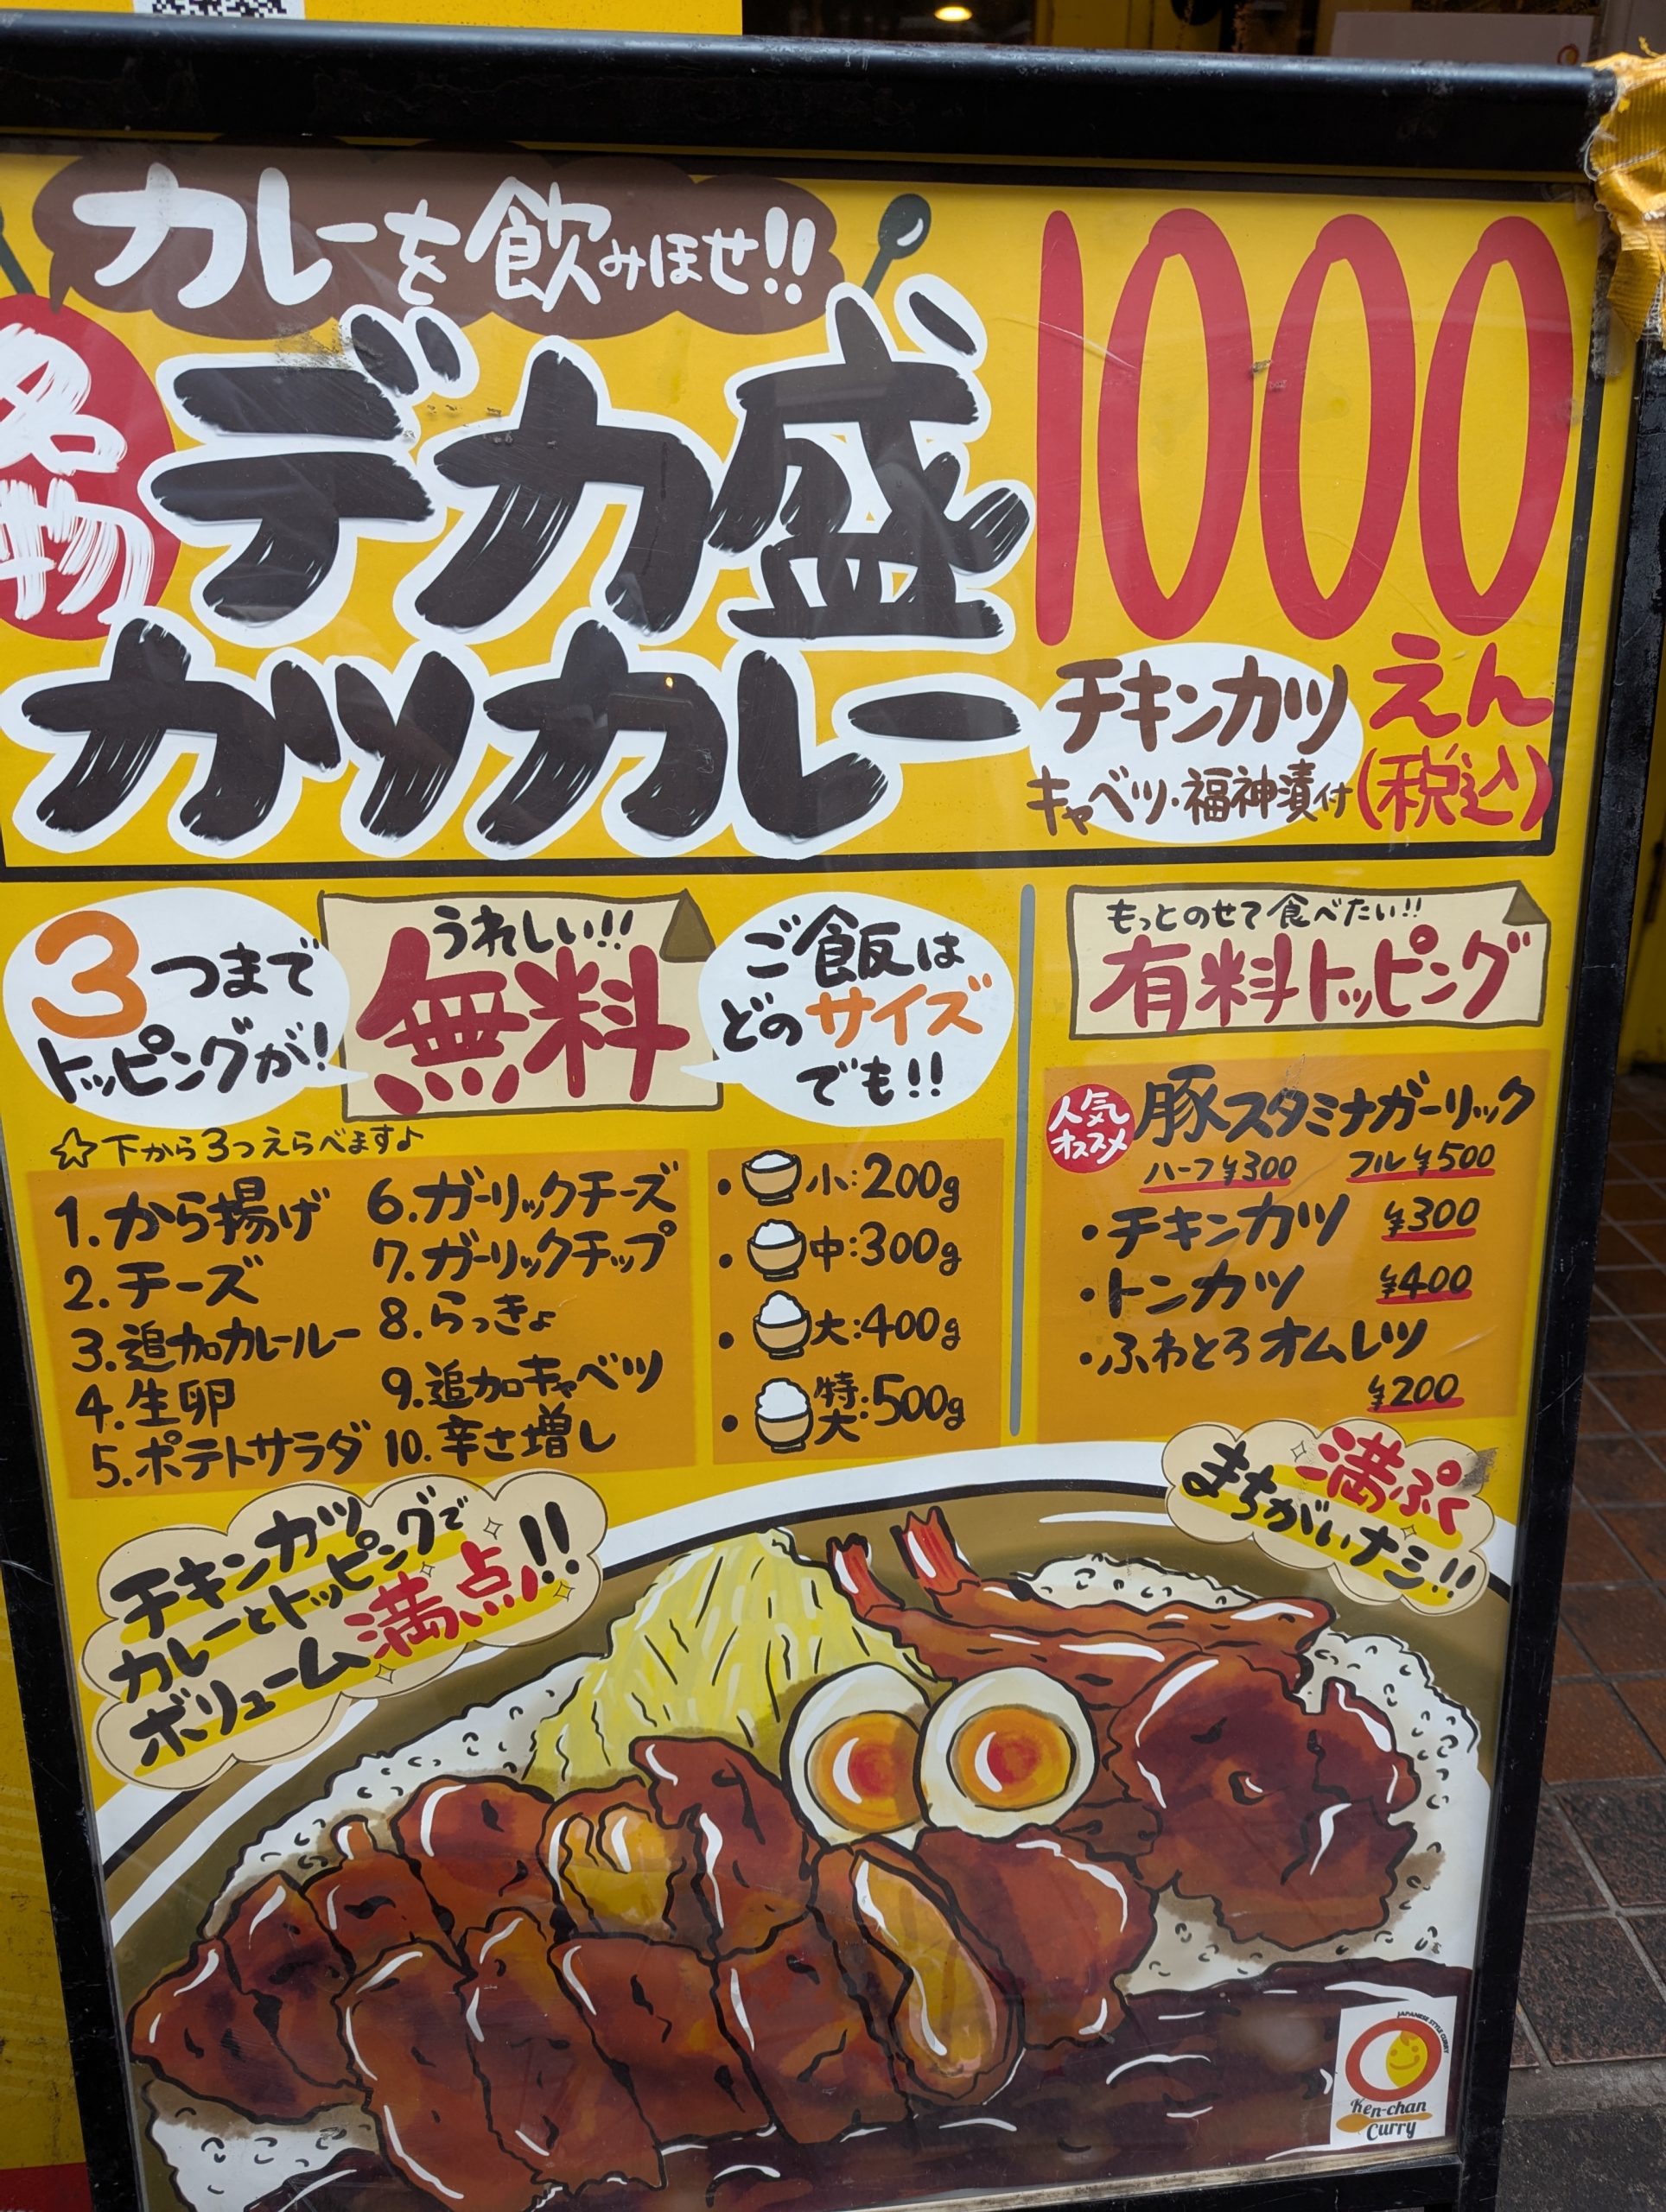 カレーを飲みほせ!!
名物
デカ盛
カツカレー
1000
えん
(税込)
チキンカツ
キャベツ・福神漬付
3つまで
トッピングが!
うれしい!!
無料
ご飯は
どのサイズ
でも!!
☆下から3つえらべます♪
1.から揚げ
2.チーズ
3.追加カレールー
4.生卵
5.ポテトサラダ
6.ガーリックチーズ
7.ガーリックチップ
8.らっきょ
9.追加キャベツ
10.辛さ増し
・小:200g
・中:300g
・大:400g
・特大:500g
もっとのせて食べたい!!
有料トッピング
人気
オススメ
豚スタミナガーリック
ハーフ¥300 フル¥500
・チキンカツ ¥300
・トンカツ ¥400
・ふわとろオムレツ
¥200
チキンカツ
カレーとトッピングで
ボリューム満点!!
満ぷく
まちがいナシ!!
JAPANESE STYLE CURRY
Ken-chan
Curry